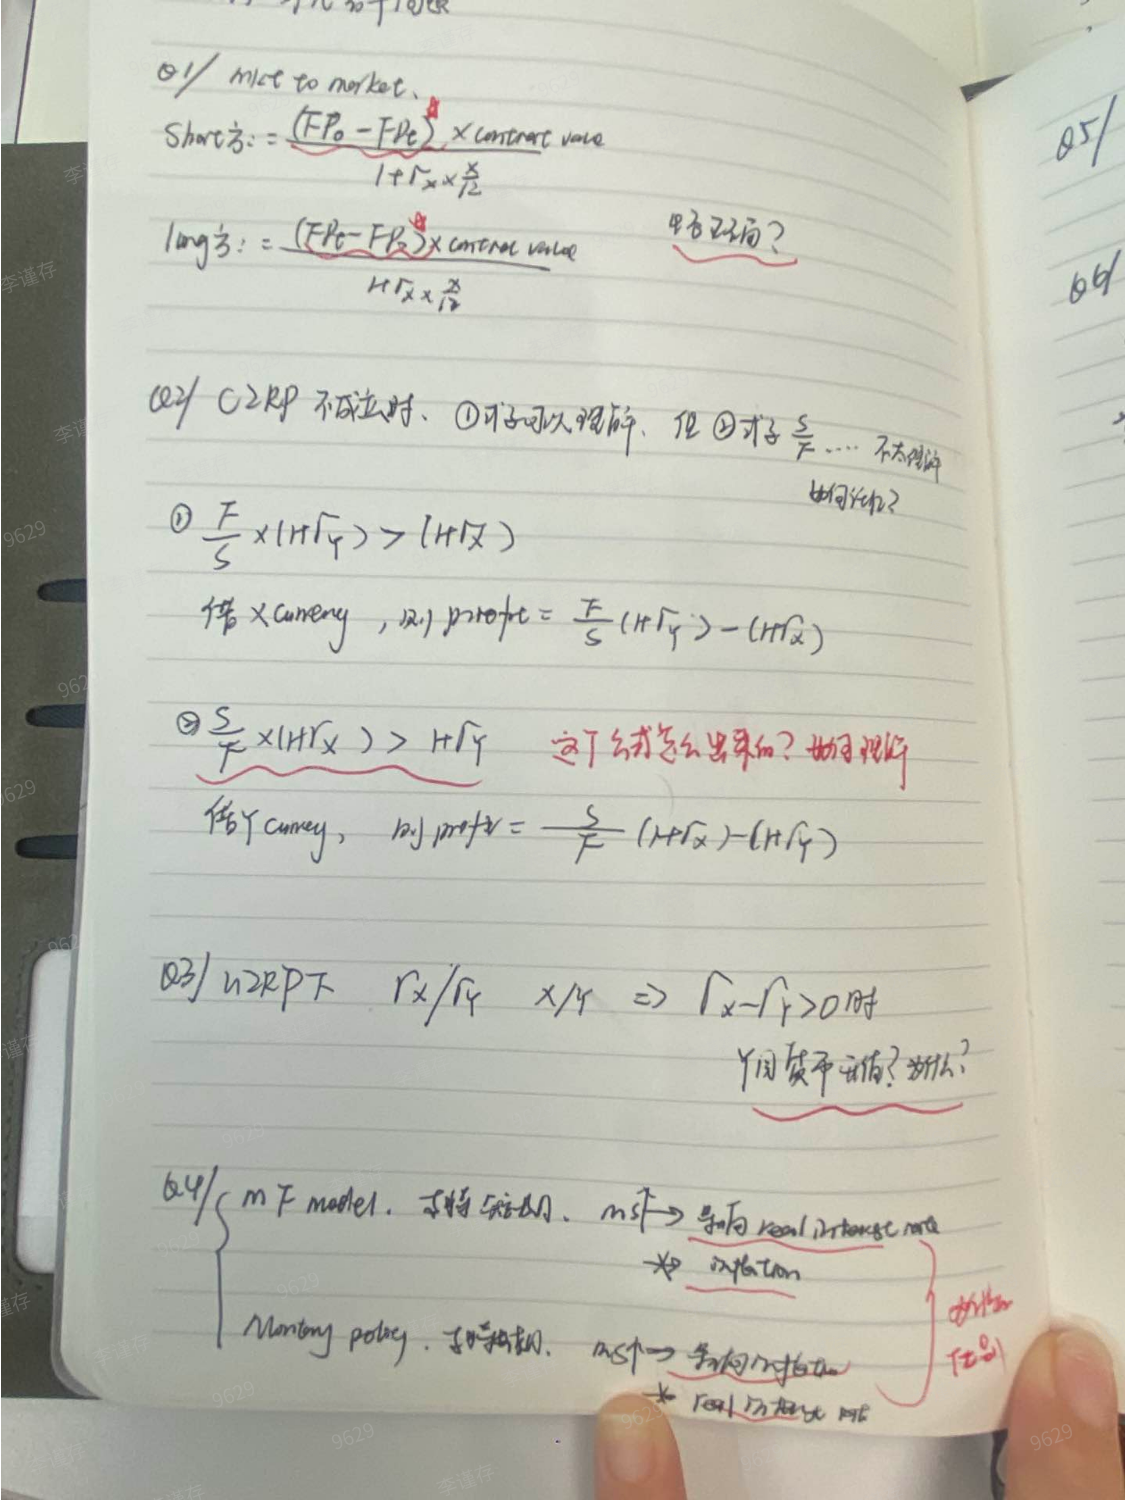 Q1/ mkt to market.
Short方: = (FP₀ - FPt) × contract value
1+rx × x/12
long方: = (FPt - FP₀) × contract value
1+rx × x/12
Q2/ CIRP 不成立时、①式子可以理解、但②式子 S/F .... 不太理解
如何论证?
① F/S ×(1+rY) > (1+rX)
借 X currency , 则 profit = F/S (1+rY) - (1+rX)
② S/F ×(1+rX) > 1+rY 这个公式怎么出来的? 如何理解
借Y currency, 则 profit = S/F (1+rX) - (1+rY)
Q3/ UIRP下 rX/rY X/Y => rX-rY>0时
Y国货币 值? 为什么?
Q4/ MF model. 支持短期. MS↑→ 影响 real interest rate
inflation
Monetary policy. 支持长期. MS↑→ 影响 inflation
real interest rate
Q5/
Q6/
李谨存
9629